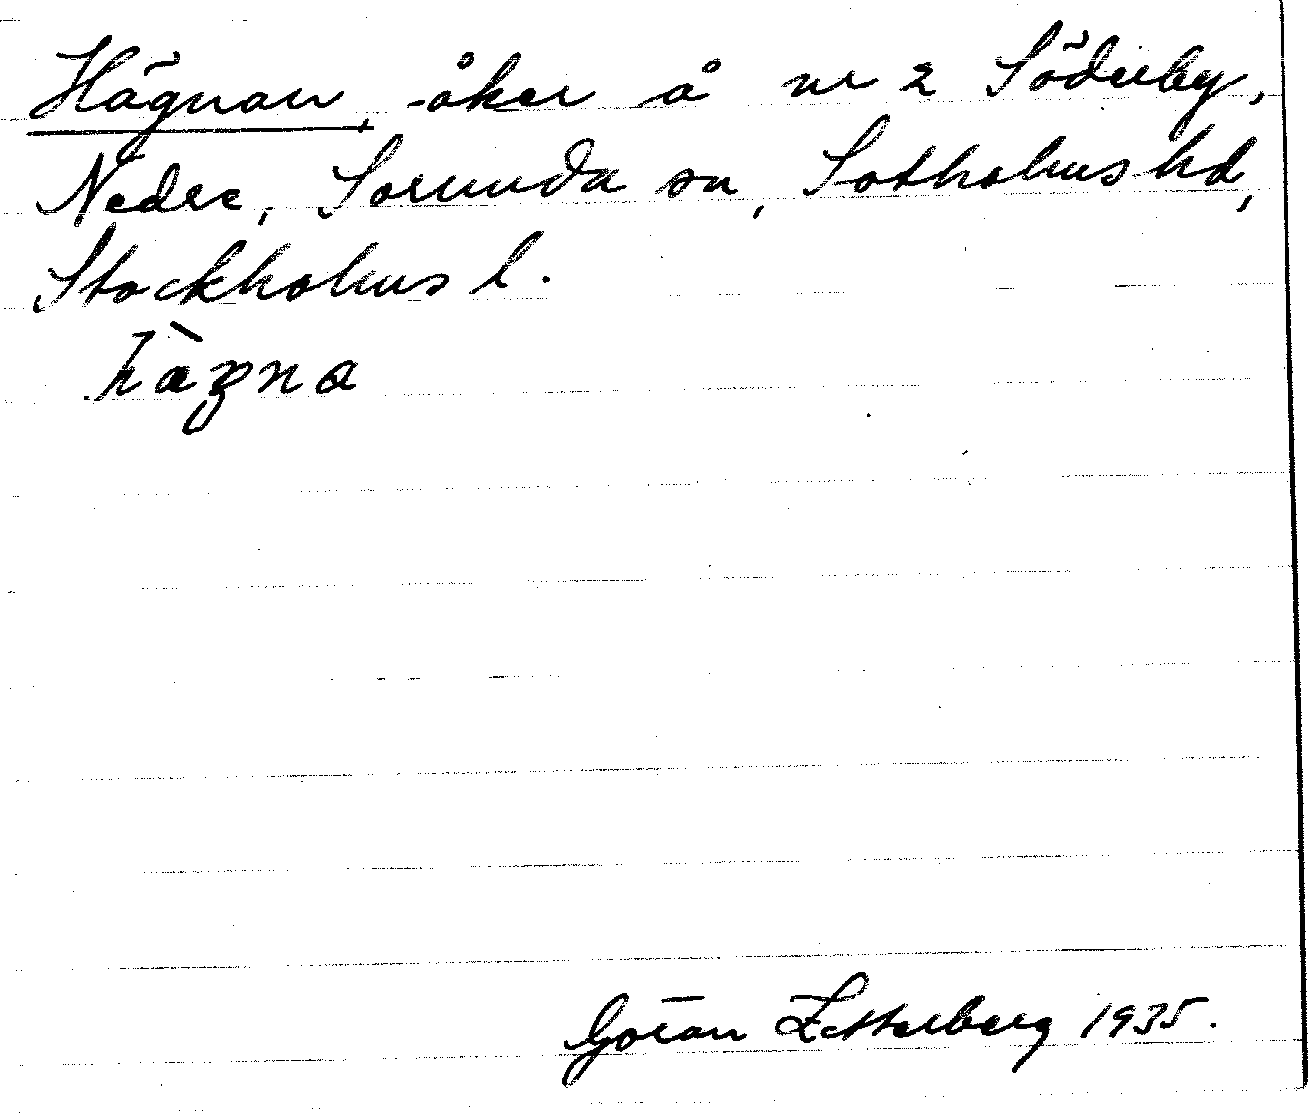 Hägnan, åker å nr 2 Söderby,
Nedre, Sorunda sn, Sotholms hd,
Stockholms l.
hàgna
Göran Zetterberg 1935.